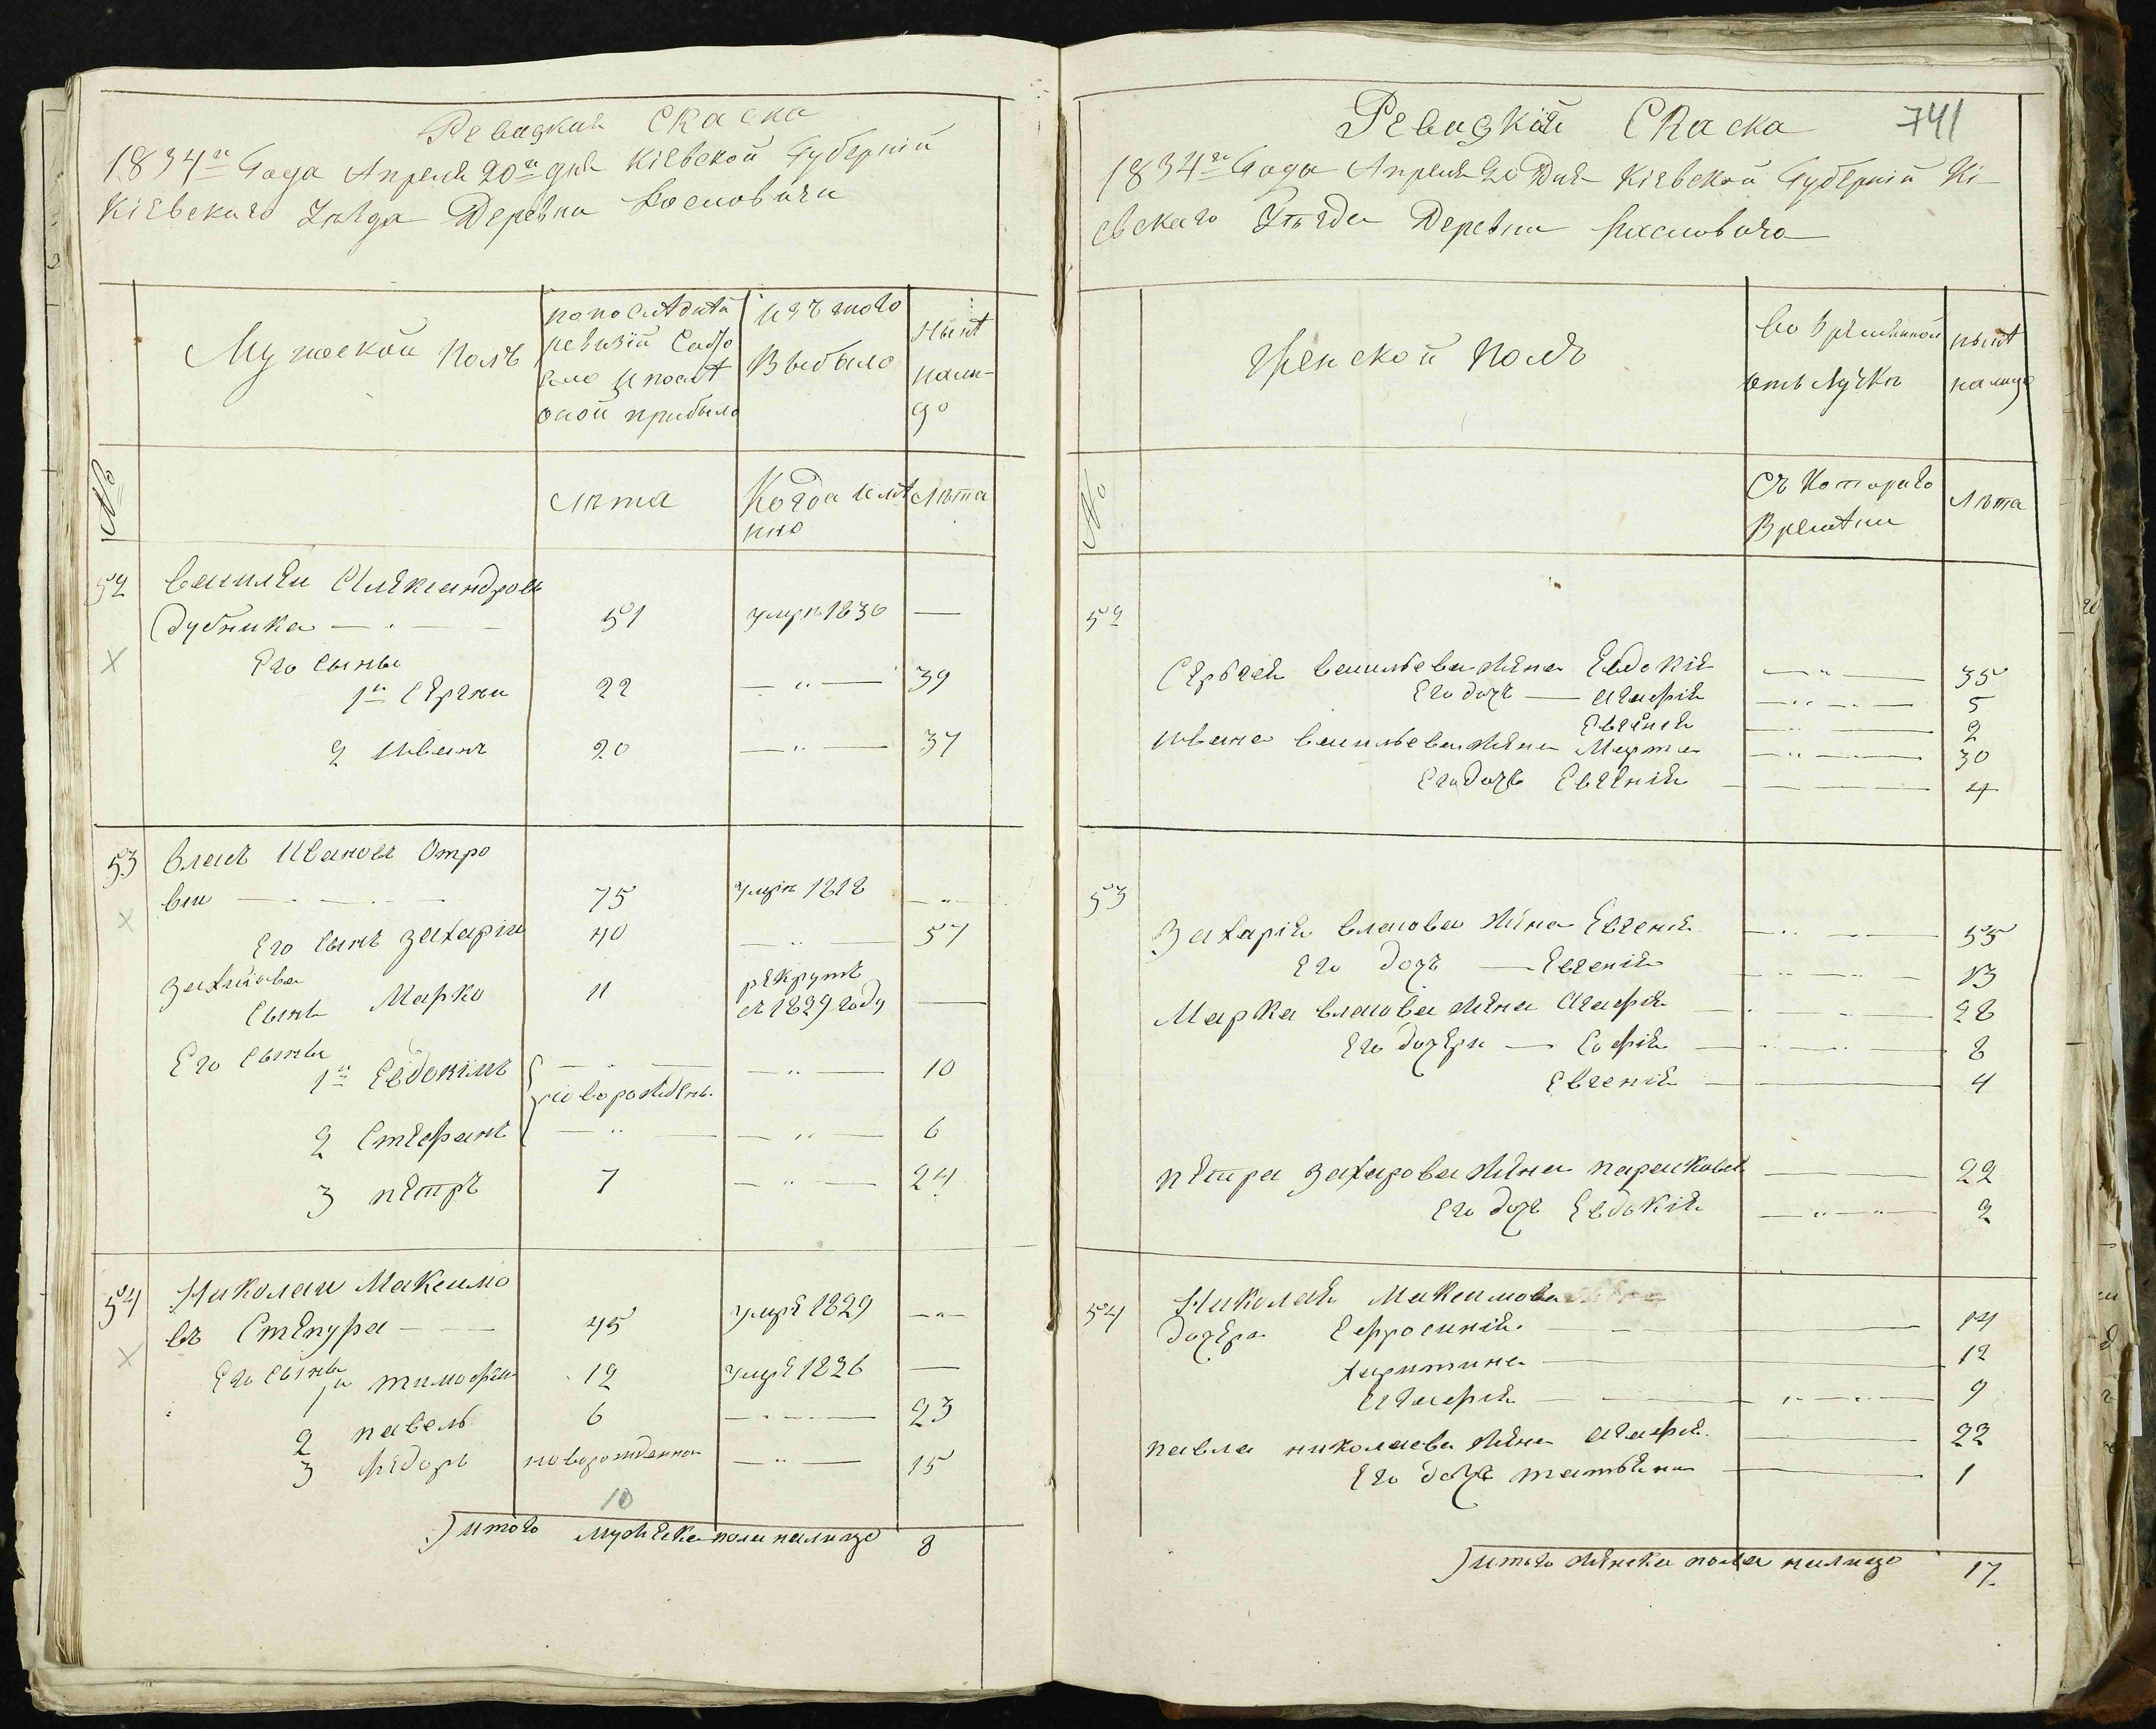 Ревизкая Скаска
1834го Года Апреля 20го дня Кіевской Губерніи
Кіевскаго Уезда Деревни
Мужеской Полъ
по последней
ревизіи Состо
яло и после
оной прибыло
изъ того
Выбыло
Ныне
нали-
цо
№
лета
Когда имян
но
Лета
52 Василеи Александровъ
Дубника — 51 умре 1830 —
Его Сыны
1й Сергеи 22 — 39
2 Иванъ 20 — 37
53 Власъ Ивановъ Отро
— 75 умре 1818 —
Его Сынъ Захарии 40 — 57
Сынъ Марко 11 рекрутъ
въ 1829 году —
Его Сыны
1й Евдокимъ — — 10
новорожден.
2 Стефанъ — — 6
3 петръ 7 — 24
54 Николаи Максимо
въ Степура — 45 умре 1829 —
Его Сыны
1й тимофеи 12 умре 1826 —
2 павелъ 6 — 23
3 федоръ новорожденной — 15
10
итого мужеска пола налицо 8
Ревизкая Скаска 741
1834го Года Апреля 20 Дня Кіевской Губерніи Кі-
евскаго Уезда Деревни
Женской полъ
Во временной
отлучке
ныне
налицо
№
Съ Котораго
Времени
Лета
52
Сергея Васильева жена Евдокія — 35
Его дочь — агафія — 5
Евгенія — 2
ивана Васильева жена Марта — 30
Его дочь Евгенія — 4
53
Захарія власова жена Евгенія — 55
Его дочь — Евгенія — 13
Марка власова жена Агафія — 28
Его дочери — Софія — 8
Евгенія — 4
петра Захарова жена парасковія — 22
Его дочь Евдокія — 2
54 Николая Максимова жена
дочери Ефросинія — 14
харитина — 12
Агафія — 9
павла николаева жена агафія — 22
Его дочь татьяна — 1
итого женска пола налицо 17